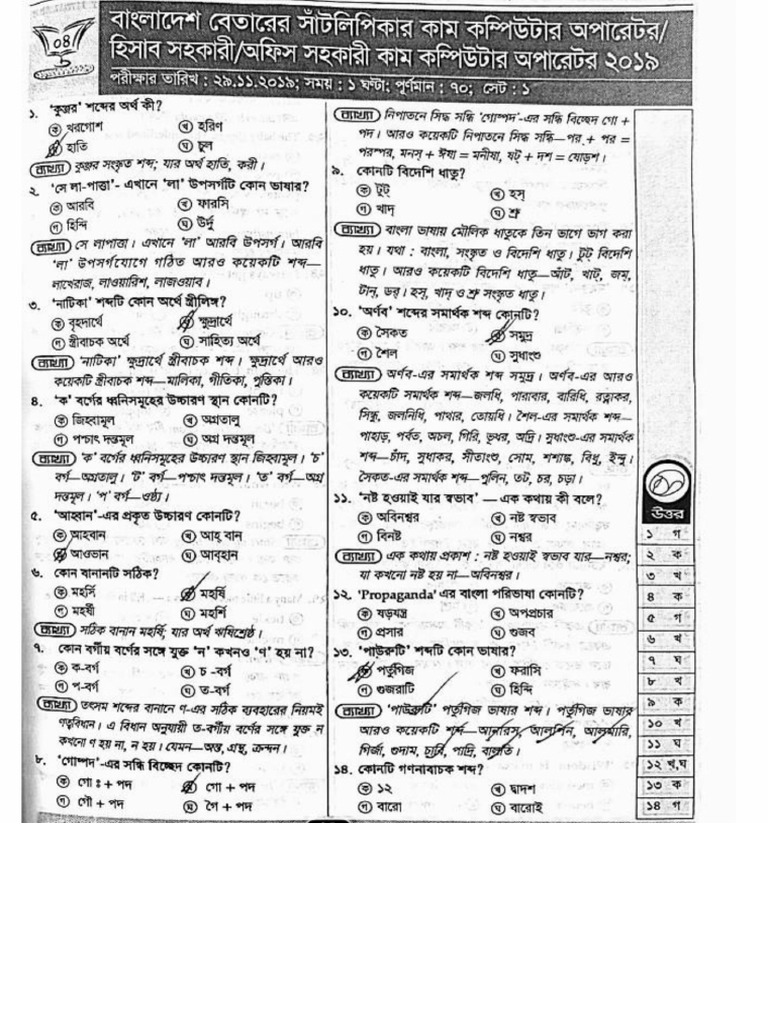 ০৪
বাংলাদেশ বেতারের সাঁটলিপিকার কাম কম্পিউটার অপারেটর/
হিসাব সহকারী/অফিস সহকারী কাম কম্পিউটার অপারেটর ২০১৯
পরীক্ষার তারিখ : ২৯.১১.২০১৯; সময় : ১ ঘণ্টা; পূর্ণমান : ৭০; সেট : ১
১. ‘কুঞ্জর’ শব্দের অর্থ কী?
ক খরগোশ খ হরিণ
হাতি ঘ চুল
ব্যাখ্যা কুঞ্জর সংস্কৃত শব্দ; যার অর্থ হাতি, করী।
২. ‘সে লা-পাত্তা’- এখানে ‘লা’ উপসর্গটি কোন ভাষার?
ক আরবি খ ফারসি
গ হিন্দি ঘ উর্দু
ব্যাখ্যা সে লাপাত্তা। এখানে ‘লা’ আরবি উপসর্গ। আরবি
‘লা’ উপসর্গযোগে গঠিত আরও কয়েকটি শব্দ—
লাখেরাজ, লাওয়ারিশ, লাজওয়াব।
৩. ‘নাটিকা’ শব্দটি কোন অর্থে স্ত্রীলিঙ্গ?
ক বৃহদার্থে ক্ষুদ্রার্থে
গ স্ত্রীবাচক অর্থে ঘ সাহিত্য অর্থে
ব্যাখ্যা ‘নাটিকা’ ক্ষুদ্রার্থে স্ত্রীবাচক শব্দ। ক্ষুদ্রার্থে আরও
কয়েকটি স্ত্রীবাচক শব্দ—মালিকা, গীতিকা, পুস্তিকা।
৪. ‘ক’ বর্গের ধ্বনিসমূহের উচ্চারণ স্থান কোনটি?
ক জিহ্বামূল খ অগ্রতালু
গ পশ্চাৎ দন্তমূল ঘ অগ্র দন্তমূল
ব্যাখ্যা ‘ক’ বর্গের ধ্বনিসমূহের উচ্চারণ স্থান জিহ্বামূল। ‘চ’
বর্গ—অগ্রতালু। ‘ট’ বর্গ—পশ্চাৎ দন্তমূল। ‘ত’ বর্গ—অগ্র
দন্তমূল। ‘প’ বর্গ—ওষ্ঠ্য।
৫. ‘আহ্বান’-এর প্রকৃত উচ্চারণ কোনটি?
ক আহবান খ আহ্ বান
আওভান ঘ আব্হান
৬. কোন বানানটি সঠিক?
ক মহর্সি মহর্ষি
গ মহর্ষী ঘ মহর্শি
ব্যাখ্যা সঠিক বানান মহর্ষি; যার অর্থ ঋষিশ্রেষ্ঠ।
৭. কোন বর্গীয় বর্ণের সঙ্গে যুক্ত ‘ন’ কখনও ‘ণ’ হয় না?
ক ক-বর্গ খ চ -বর্গ
গ প-বর্গ ঘ ত-বর্গ
ব্যাখ্যা তৎসম শব্দের বানানে ণ-এর সঠিক ব্যবহারের নিয়মই
ণত্ববিধান। এ বিধান অনুযায়ী ত-বর্গীয় বর্ণের সঙ্গে যুক্ত ন
কখনো ণ হয় না, ন হয়। যেমন—অন্ত, গ্রন্থ, ক্রন্দন।
৮. ‘গোষ্পদ’-এর সন্ধি বিচ্ছেদ কোনটি?
ক গোঃ + পদ গো + পদ
গ গৌ + পদ ঘ গৈ + পদ
ব্যাখ্যা নিপাতনে সিদ্ধ সন্ধি ‘গোষ্পদ’-এর সন্ধি বিচ্ছেদ গো +
পদ। আরও কয়েকটি নিপাতনে সিদ্ধ সন্ধি—পর + পর =
পরস্পর, মনস্ + ঈষা = মনীষা, ষট্ + দশ = ষোড়শ।
৯. কোনটি বিদেশি ধাতু?
ক টুট্ খ হস্
গ খাদ্ ঘ শ্রু
ব্যাখ্যা বাংলা ভাষায় মৌলিক ধাতুকে তিন ভাগে ভাগ করা
হয়। যথা : বাংলা, সংস্কৃত ও বিদেশি ধাতু। টুট বিদেশি
ধাতু। আরও কয়েকটি বিদেশি ধাতু—আঁট, খাট্, জম,
টান্, ডর্। হস্, খাদ্ ও শ্রু সংস্কৃত ধাতু।
১০. ‘অর্ণব’ শব্দের সমার্থক শব্দ কোনটি?
ক সৈকত সমুদ্র
গ শৈল ঘ সুধাংশু
ব্যাখ্যা অর্ণব-এর সমার্থক শব্দ সমুদ্র। অর্ণব-এর আরও
কয়েকটি সমার্থক শব্দ—জলধি, পারাবার, বারিধি, রত্নাকর,
সিন্ধু, জলনিধি, পাথার, তোয়ধি। শৈল-এর সমার্থক শব্দ—
পাহাড়, পর্বত, অচল, গিরি, ভূধর, অদ্রি। সুধাংশু-এর সমার্থক
শব্দ—চাঁদ, সুধাকর, সীতাংশু, সোম, শশাঙ্ক, বিধু, ইন্দু।
সৈকত-এর সমার্থক শব্দ—পুলিন, তট, চর, চড়া।
১১. ‘নষ্ট হওয়াই যার স্বভাব’ — এক কথায় কী বলে?
ক অবিনশ্বর খ নষ্ট স্বভাব
গ বিনষ্ট ঘ নশ্বর
ব্যাখ্যা এক কথায় প্রকাশ : নষ্ট হওয়াই স্বভাব যার—নশ্বর;
যা কখনো নষ্ট হয় না—অবিনশ্বর।
১২. ‘Propaganda’ এর বাংলা পরিভাষা কোনটি?
ক ষড়যন্ত্র খ অপপ্রচার
গ প্রসার ঘ গুজব
১৩. ‘পাউরুটি’ শব্দটি কোন ভাষার?
পর্তুগিজ খ ফরাসি
গ গুজরাটি ঘ হিন্দি
ব্যাখ্যা ‘পাউরুটি’ পর্তুগিজ ভাষার শব্দ। পর্তুগিজ ভাষার
আরও কয়েকটি শব্দ—আনারস, আলপিন, আলমারি,
গির্জা, গুদাম, চাবি, পাদ্রি, বালতি।
১৪. কোনটি গণনাবাচক শব্দ?
ক ১২ খ দ্বাদশ
গ বারো ঘ বারোই
উত্তর
১ গ
২ ক
৩ খ
৪ ক
৫ গ
৬ খ
৭ ঘ
৮ খ
৯ ক
১০ খ
১১ ঘ
১২ খ,ঘ
১৩ ক
১৪ গ